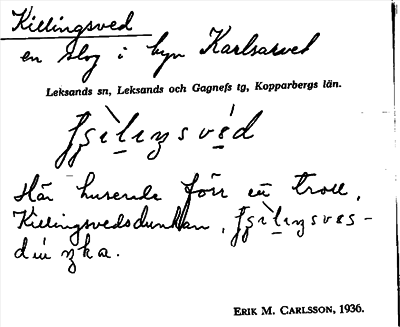 Killingsved
en slog i byn Karlsarvet
Leksands sn, Leksands och Gagnefs tg, Kopparbergs län.
Här huserade förr ett troll,
Killingsvedsdunkan,
ERIK M. CARLSSON, 1936.